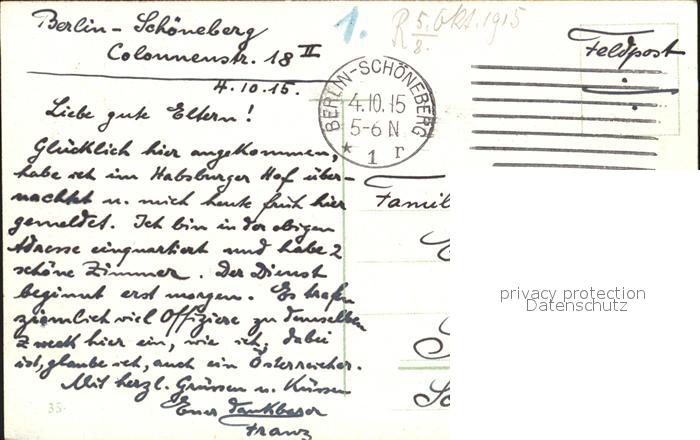 Berlin-Schöneberg
Colonnenstr. 18 II
4.10.15.
1.
R 5. Okt. 1915
8.
BERLIN-SCHÖNEBERG
4.10.15
5-6 N
* 1 r
Feldpost
Liebe gute Eltern!
Glücklich hier angekommen,
habe ich im Habsburger Hof über-
nachtet u. mich heute früh hier
gemeldet. Ich bin in der obigen
Adresse einquartiert und habe 2
schöne Zimmer. Der Dienst
beginnt erst morgen. Es trafen
ziemlich viel Offiziere zu demselben
Zweck hier ein, wie ich, dabei
ist, glaube ich, auch ein Österreicher.
Mit herzl. Grüssen u. Küssen
Euer dankbarer
Franz
Famil
privacy protection
Datenschutz
35